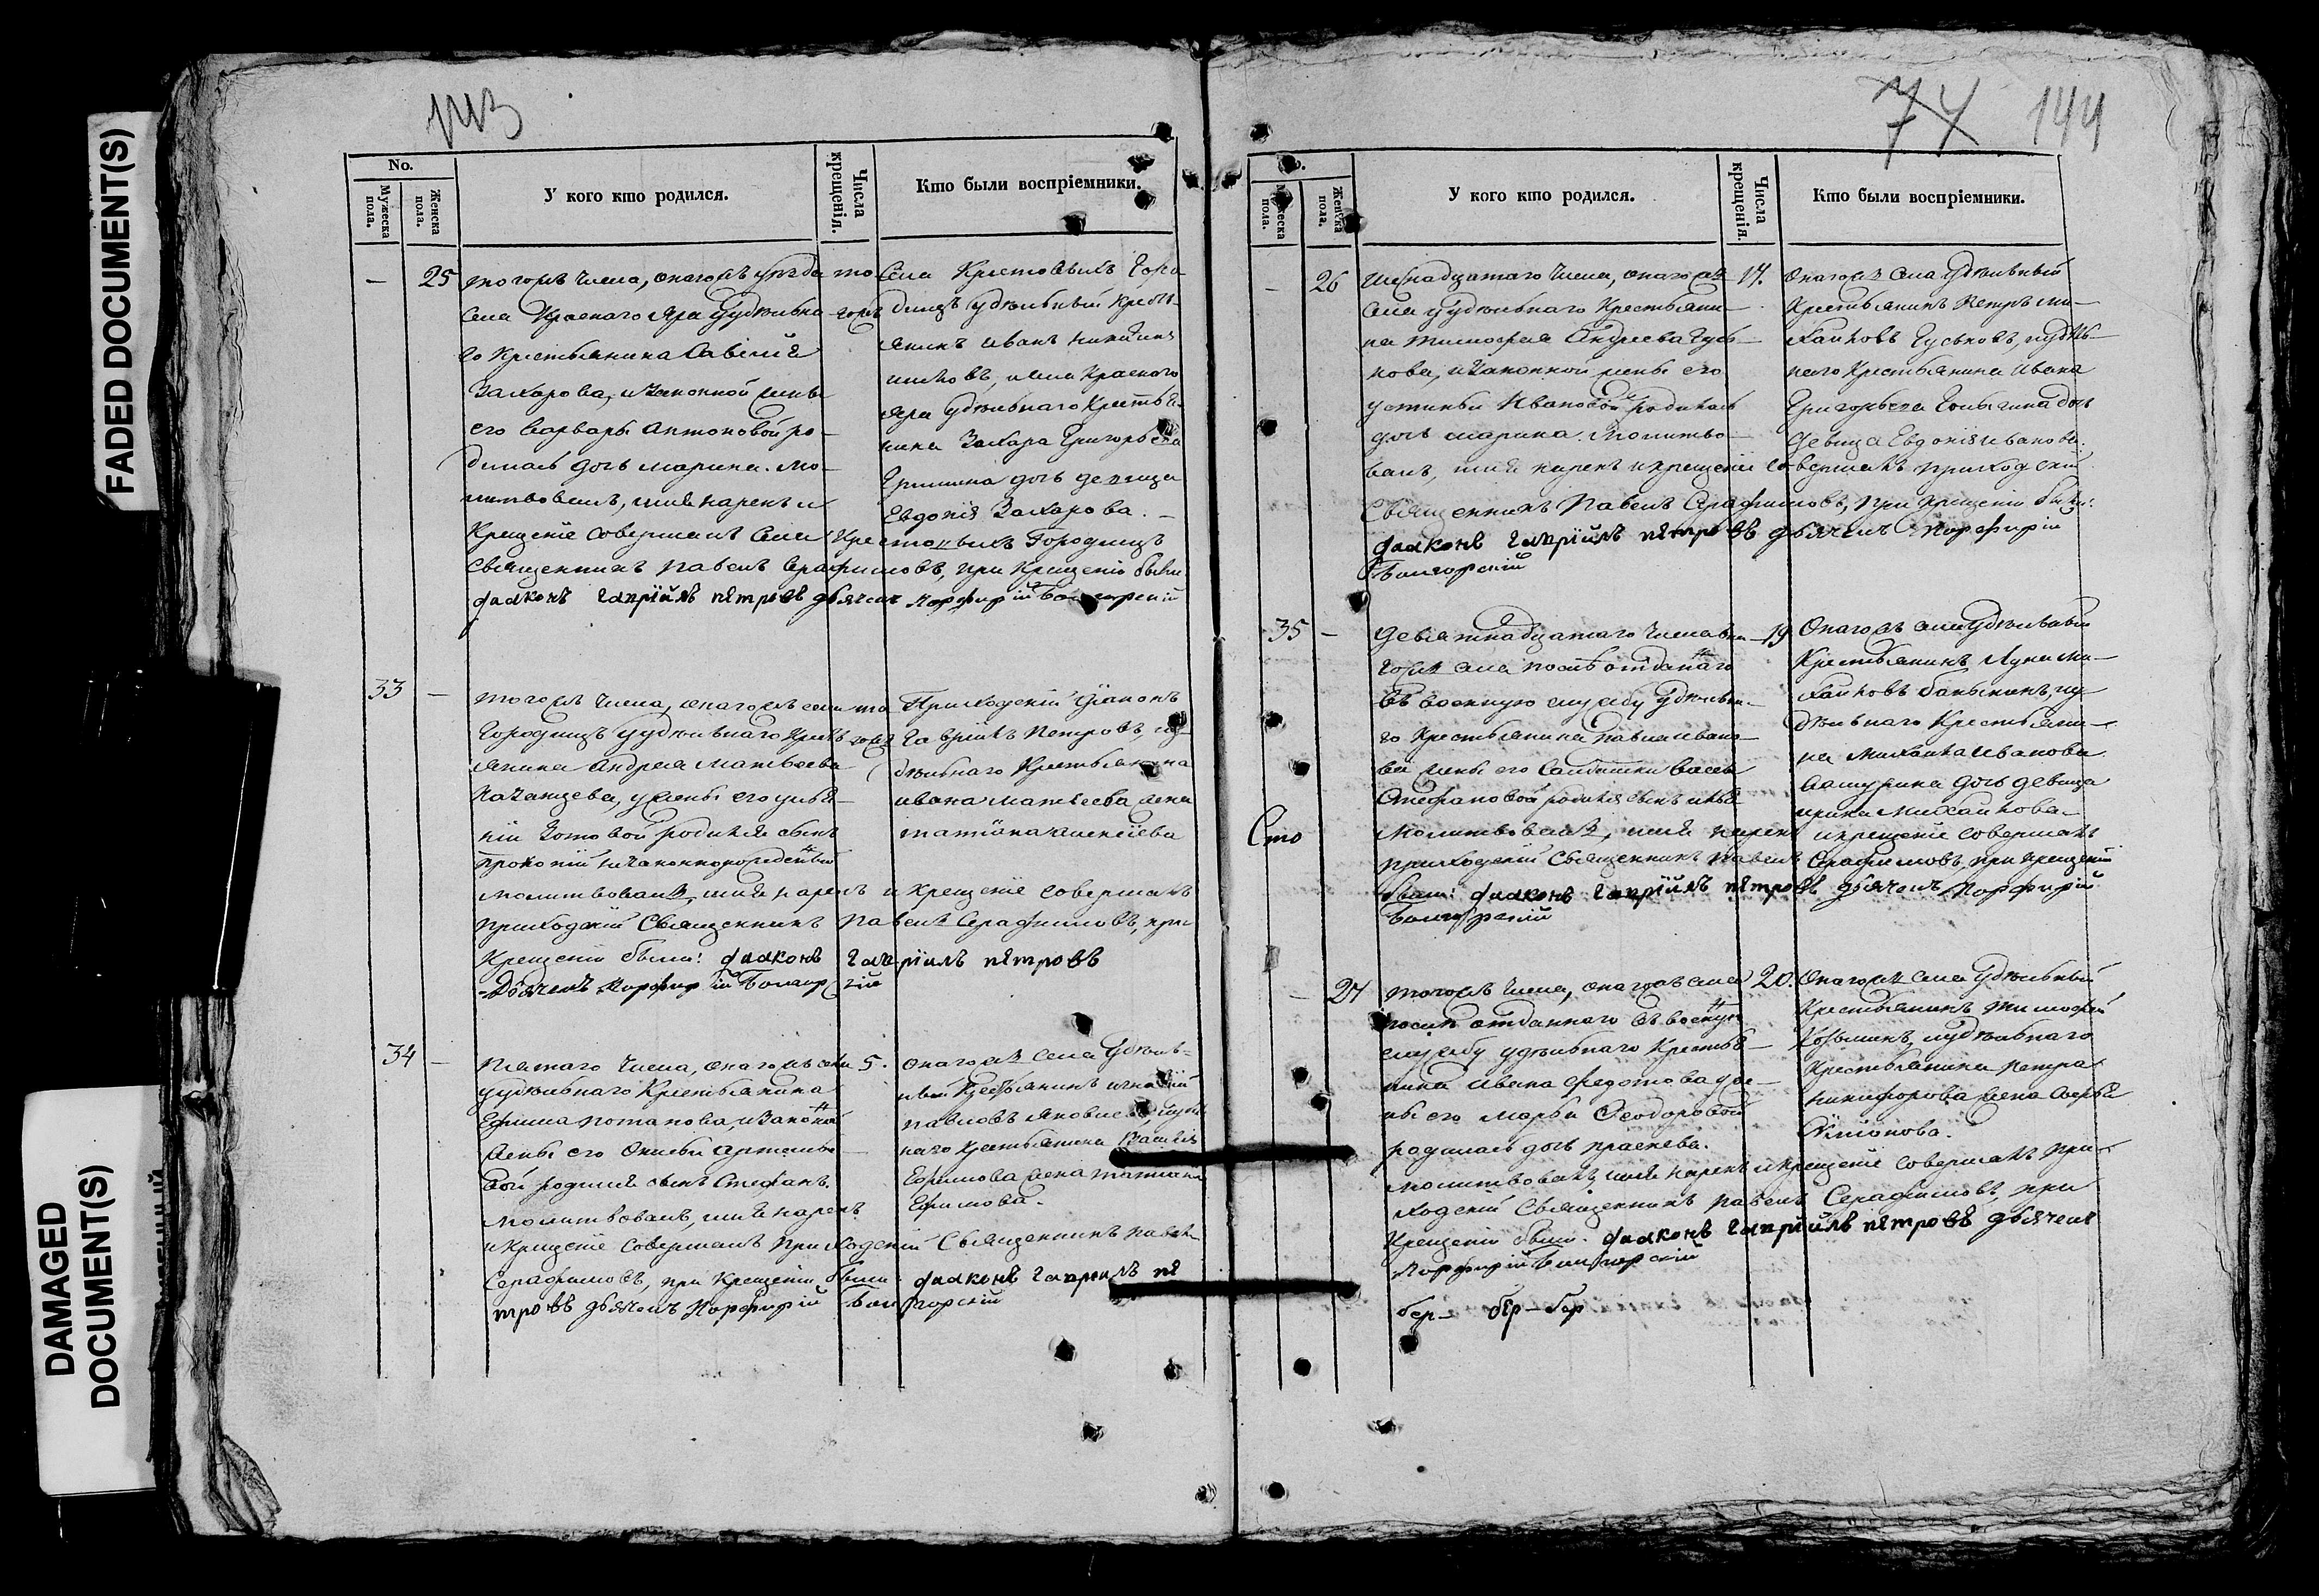 FADED DOCUMENT(S)
DAMAGED
DOCUMENT(S)
143
No.
Мужеска пола.
Женска пола.
У кого кто родился.
Числа крещенія.
Кто были воспріемники.
— 25
тогожъ числа, онагожъ уѣзда
села Краснаго Яра удѣльна-
го крестьянина Савелія
Захарова, и законной жены
его Варвары Антоновой ро-
дилась дочь Марина. Мо-
литвовалъ, имя нарекъ и
Крещеніе совершалъ села Крестовыхъ Городищъ
священникъ Павелъ Серафимовъ, при крещеніи были
диаконъ Гавріилъ Петровъ дьячекъ Порфирій Болгорскій
то
гожъ
Села Крестовыхъ Горо-
дищъ удѣльный кресть-
янинъ Иванъ
и села Краснаго
Яра удѣльнаго крестья-
нина Захара Григорьева
Гришина дочь девица
Евдокія Захарова.
33 —
тогожъ числа, онагожъ села
Городищъ удѣльнаго крест-
янина Андрея Матвѣева
Казанцева, у жены его Улья-
ніи Зотовой родился сынъ
Прокопій незаконнорожденный
молитвовалъ, имя нарекъ и крещеніе совершалъ
приходскій священникъ Павелъ Серафимовъ, при
Крещеніи были: диаконъ Гавріилъ Петровъ
Дьячекъ Порфирій Болгорскій
то
гожъ
Приходскій діаконъ
Гавріилъ Петровъ, у-
дѣльнаго крестьянина
Ивана Матвеева жена
Татіана Алексіева
34 —
Пятаго числа, онагожъ села
удѣльнаго крестьянина
Ефима Потапова, и законной
жены его
родился сынъ Стефанъ.
молитвовалъ, имя нарекъ
и крещеніе совершалъ приходскій священникъ Павелъ
Серафимовъ, при крещеніи были диаконъ Гавріилъ Пе
тровъ дьячекъ Порфирій Болгорскій
5.
онагожъ села удѣль-
ный крестьянинъ
Павловъ
наго крестьянина Василія
Ефимова жена Татиана
Ефимова.
74 144
No.
Мужеска пола.
Женска пола.
У кого кто родился.
Числа крещенія.
Кто были воспріемники.
— 26
Шеснадцатаго числа, онагожъ
села у удѣльнаго крестьяни-
на Тимофея Андреева Гусь-
кова, и законной жены его
Устиньи Ивановой родилась
дочь Марина. Молитво-
валъ, имя нарекъ и крещеніе совершалъ приходскій
Священникъ Павелъ Серафимовъ, при крещеніи были:
диаконъ Гавріилъ Петровъ дьячекъ Порфирій
Болгорскій
17.
Онагожъ села удѣльный
крестьянинъ Петръ Ми-
хайловъ Гуськовъ, и удѣль-
наго крестьянина Ивана
Григорьева дочь
девица Евдокія Иванова.
35 —
Девятнадцатаго числа она-
гожъ села послѣ отданнаго
въ военную службу удѣльна-
го крестьянина Павла Ивано-
ва жены его салдатки
Стефановой родился сынъ Илья
Молитвовалъ, имя нарекъ и крещеніе совершалъ
приходскій священникъ Павелъ Серафимовъ, при крещеніи
были: диаконъ Гавріилъ Петровъ дьячекъ Порфирій
Болгорскій
Сто
19
Онагожъ села удѣльный
крестьянинъ Лука Ми-
хайловъ
дѣльнаго крестьяни-
на Михаила Иванова
дочь девица
Ирина Михайлова
— 27
тогожъ числа, онагожъ села
послѣ отданнаго въ военную
службу удѣльнаго крестья-
нина Ивана Федотова же-
ны его Марьи Ѳеодоровой
родилась дочь Праскева.
молитвовалъ, имя нарекъ и крещеніе совершалъ при-
ходскій священникъ Павелъ Серафимовъ, при
Крещеніи были: диаконъ Гавріилъ Петровъ дьячекъ
Порфирій Болгорскій
20.
Онагожъ села удѣльный
крестьянинъ Тимофей
и удѣльнаго
крестьянина Петра
Никифорова жена